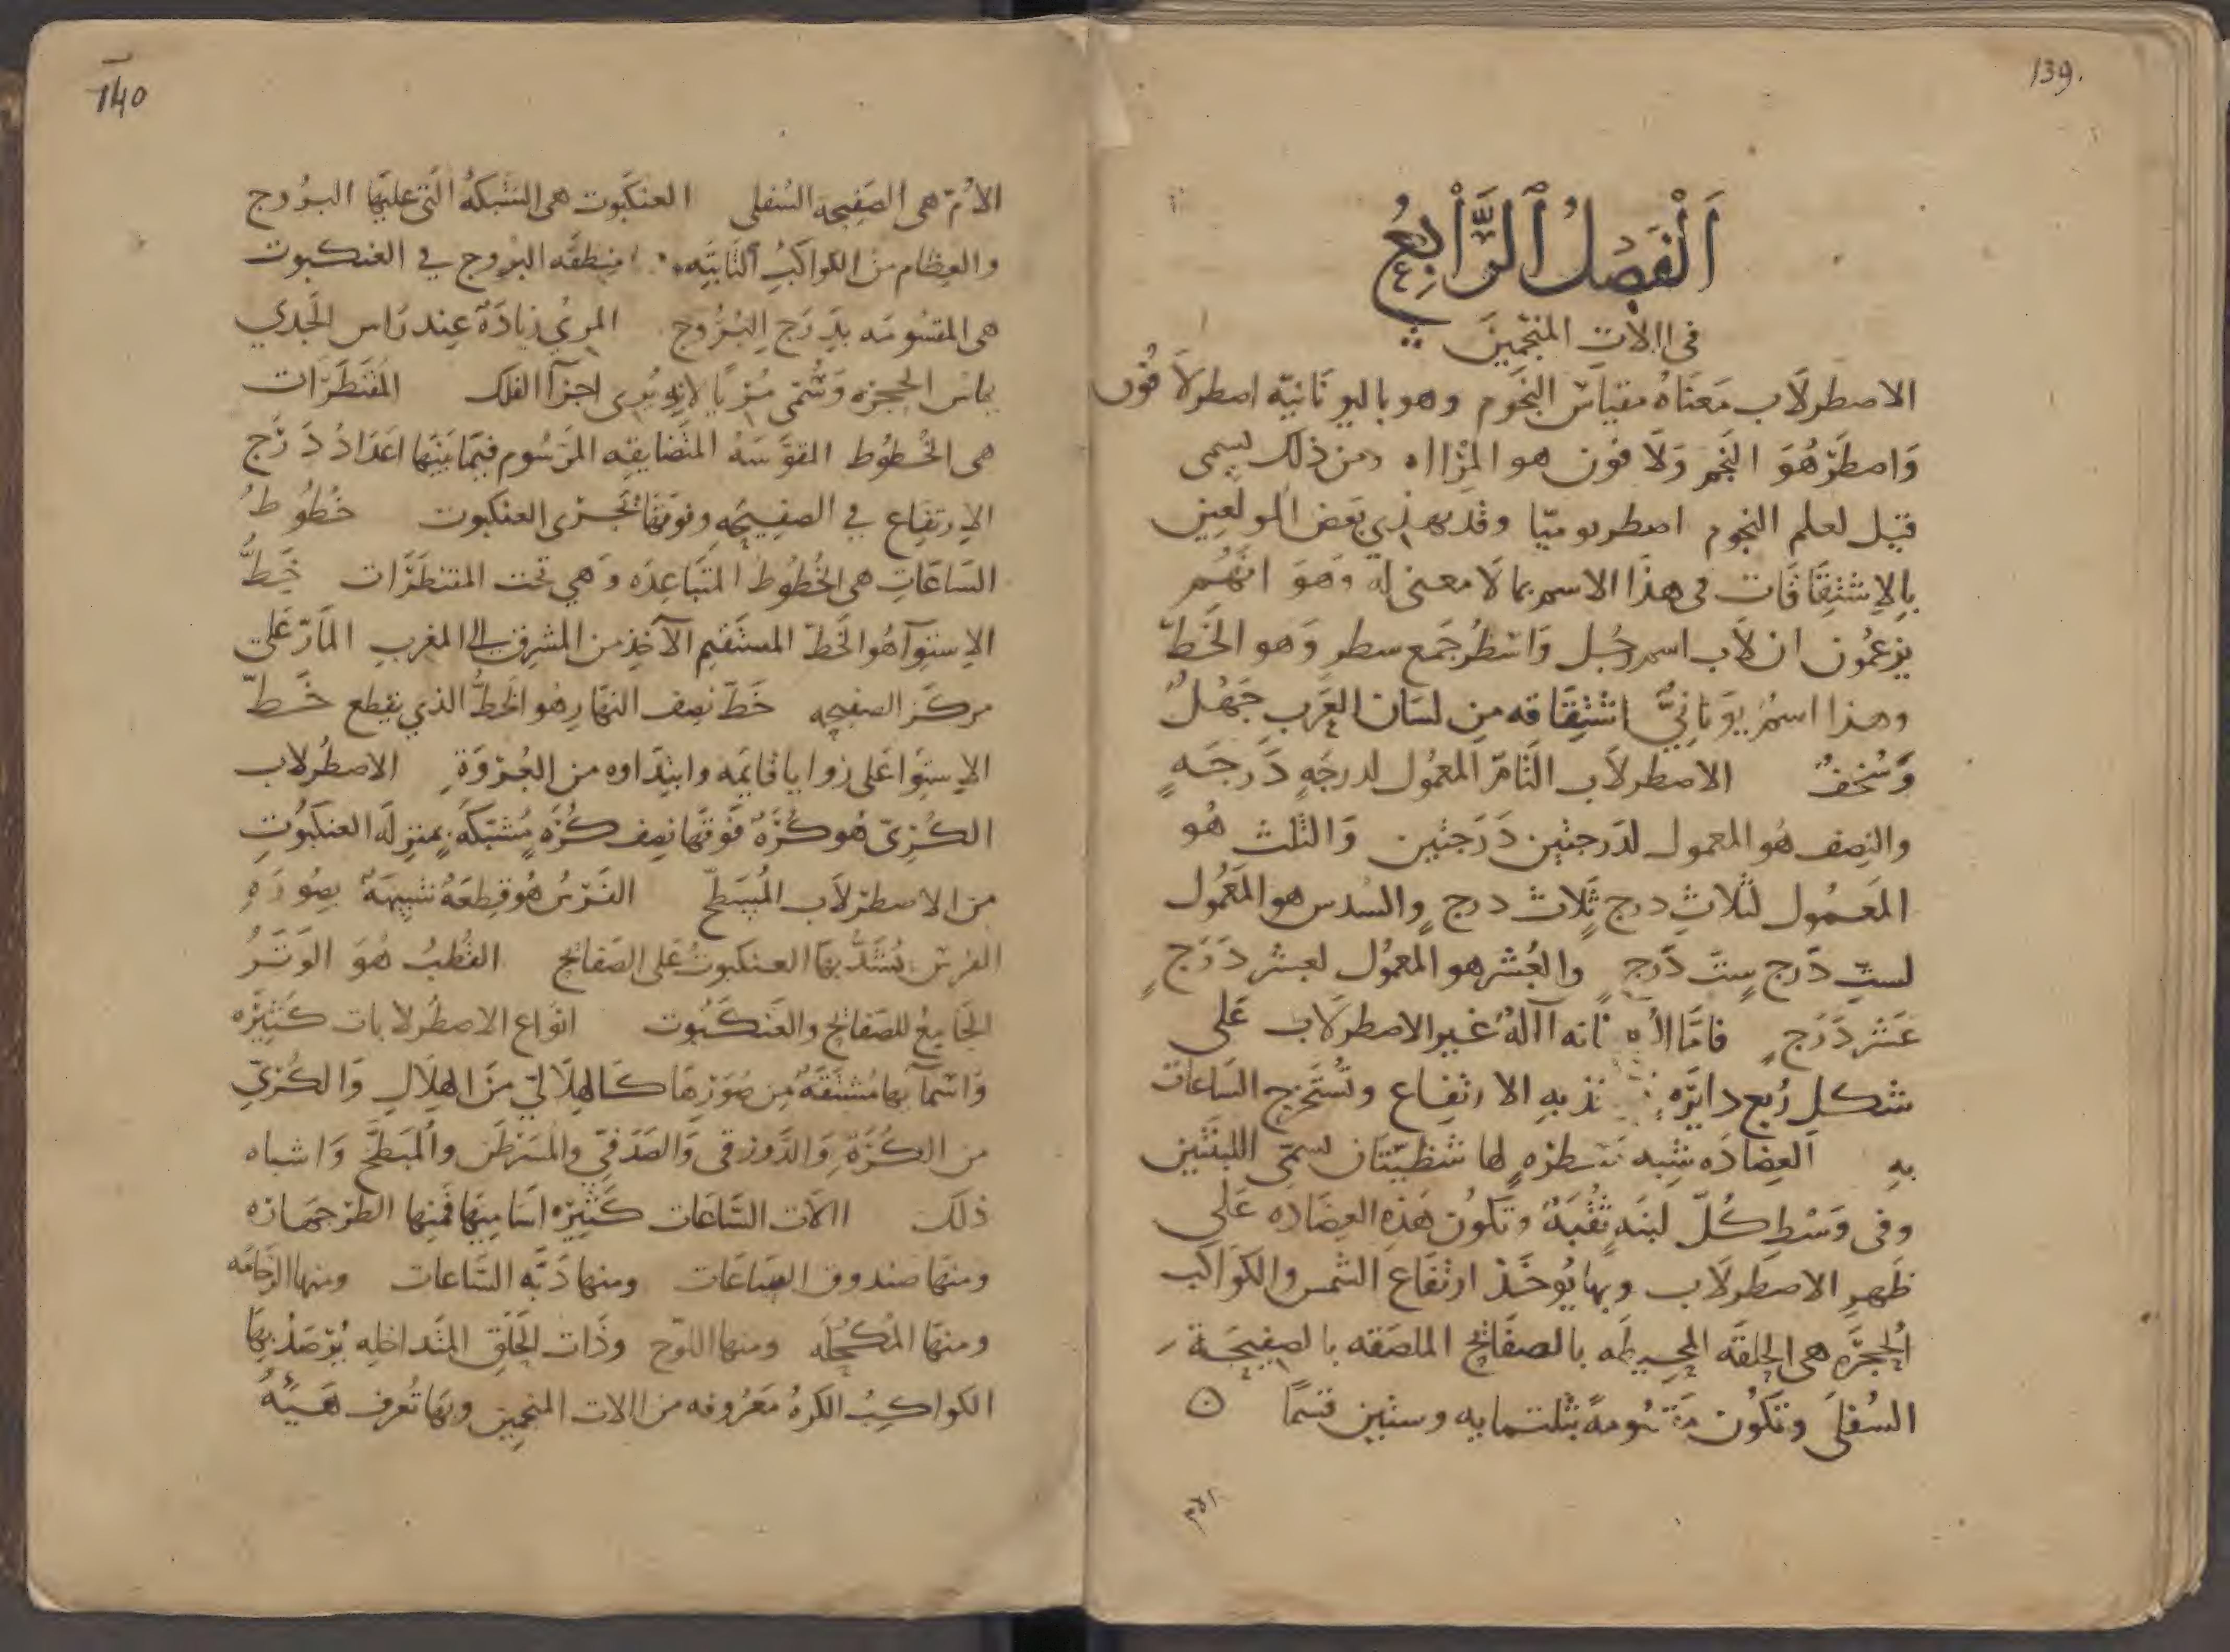 139.
الفصل الرابع
في الات المنجمين
الاصطرلاب معناه مقياس النجوم وهو باليونانيه اصطرلافون
واصطر هو النجم ولافون هو المرااه ومن ذلك يسمى
قيل لعلم النجوم اصطرنوميا وقد يهذي بعض المولعين
بالاشتقاقات في هذا الاسم بما لا معنى له وهو انهم
يزعمون ان لاب اسم رجل واسطر جمع سطر وهو الخط
وهذا اسم يوناني اشتقاقه من لسان العرب جهل
وسخف الاصطرلاب التام المعمول لدرجه درجه
والنصف هو المعمول لدرجتين درجتين والثلث هو
المعمول لثلاث درج ثلاث درج والسدس هو المعمول
لست درج ست درج والعشر هو المعمول لعشر درج
عشر درج فاما فانه آلة غير الاصطرلاب على
شكل ربع دايره به الارتفاع وتستخرج الساعات
به العضاده شبه مسطره لها شظيتان تسمى اللبنتين
وفي وسط كل لبنه ثقبة وتكون هذه العضاده على
ظهر الاصطرلاب وبها يوخذ ارتفاع الشمس والكواكب
الحجره هي الحلقه المحيطه بالصفائح الملصقه بالصفيحة
السفلى وتكون مقسومة بثلثمايه وستين قسما ه
الام
140
الام هي الصفيحه السفلى العنكبوت هي الشبكة التي عليها البروج
والعظام من الكواكب الثابته منطقه البروج في العنكبوت
هي المقسومه بدرج البروج المري زيادة عند راس الجدي
يماس الحجره وتسمى مريا لانه يرى اجزآ الفلك المقنطرات
هي الخطوط المقوسه المتضايقه المرسوم فيما بينها اعداد درج
الارتفاع في الصفيحه وفوقها تجرى العنكبوت خطوط
الساعات هي الخطوط المتباعده وهي تحت المقنطرات خط
الاستوآ هو الخط المستقيم الآخذ من المشرق الى المغرب المار على
مركز الصفيحه خط نصف النهار هو الخط الذي يقطع خط
الاستوا على زوايا قايمه وابتداوه من العروة الاصطرلاب
الكري هو كرة فوقها نصف كره مشبكه بمنزله العنكبوت
من الاصطرلاب المسطح الفرس هو قطعة شبيهة بصوره
الفرس يشد بها العنكبوت على الصفائح القطب هو الوتر
الجامع للصفائح والعنكبوت انواع الاصطرلابات كثيره
واسمآ بها مشتقة من صورها كالهلالي من الهلال والكري
من الكرة والزورقي والصدفي والمسرطن والمبطح واشباه
ذلك االات الساعات كثيره اساميها فمنها الطرجهاره
ومنها صندوق الساعات ومنها دبه الساعات ومنها الرخامه
ومنها المكحله ومنها اللوح وذات الحلق المتداخله يرصد بها
الكواكب الكرة معروفه من االات المنجمين وبها تعرف هيئة